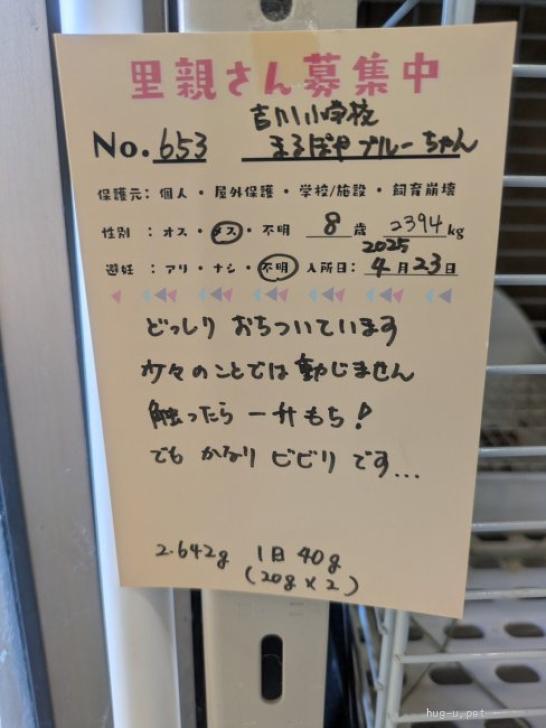 里親さん募集中
吉川小学校
No. 653 まるぽや ブルーちゃん
保護元: 個人 ・ 屋外保護 ・ 学校/施設 ・ 飼育崩壊
性別 : オス ・ メス ・ 不明 8 歳 2394 kg
2025
避妊 : アリ ・ ナシ ・ 不明 入所日: 4 月 23 日
どっしり おちついています
少々のことでは動じません
触ったら 一升もち!
でも かなり ビビリ です...
2.642g 1日 40g
(20g×2)
hug-u.pet